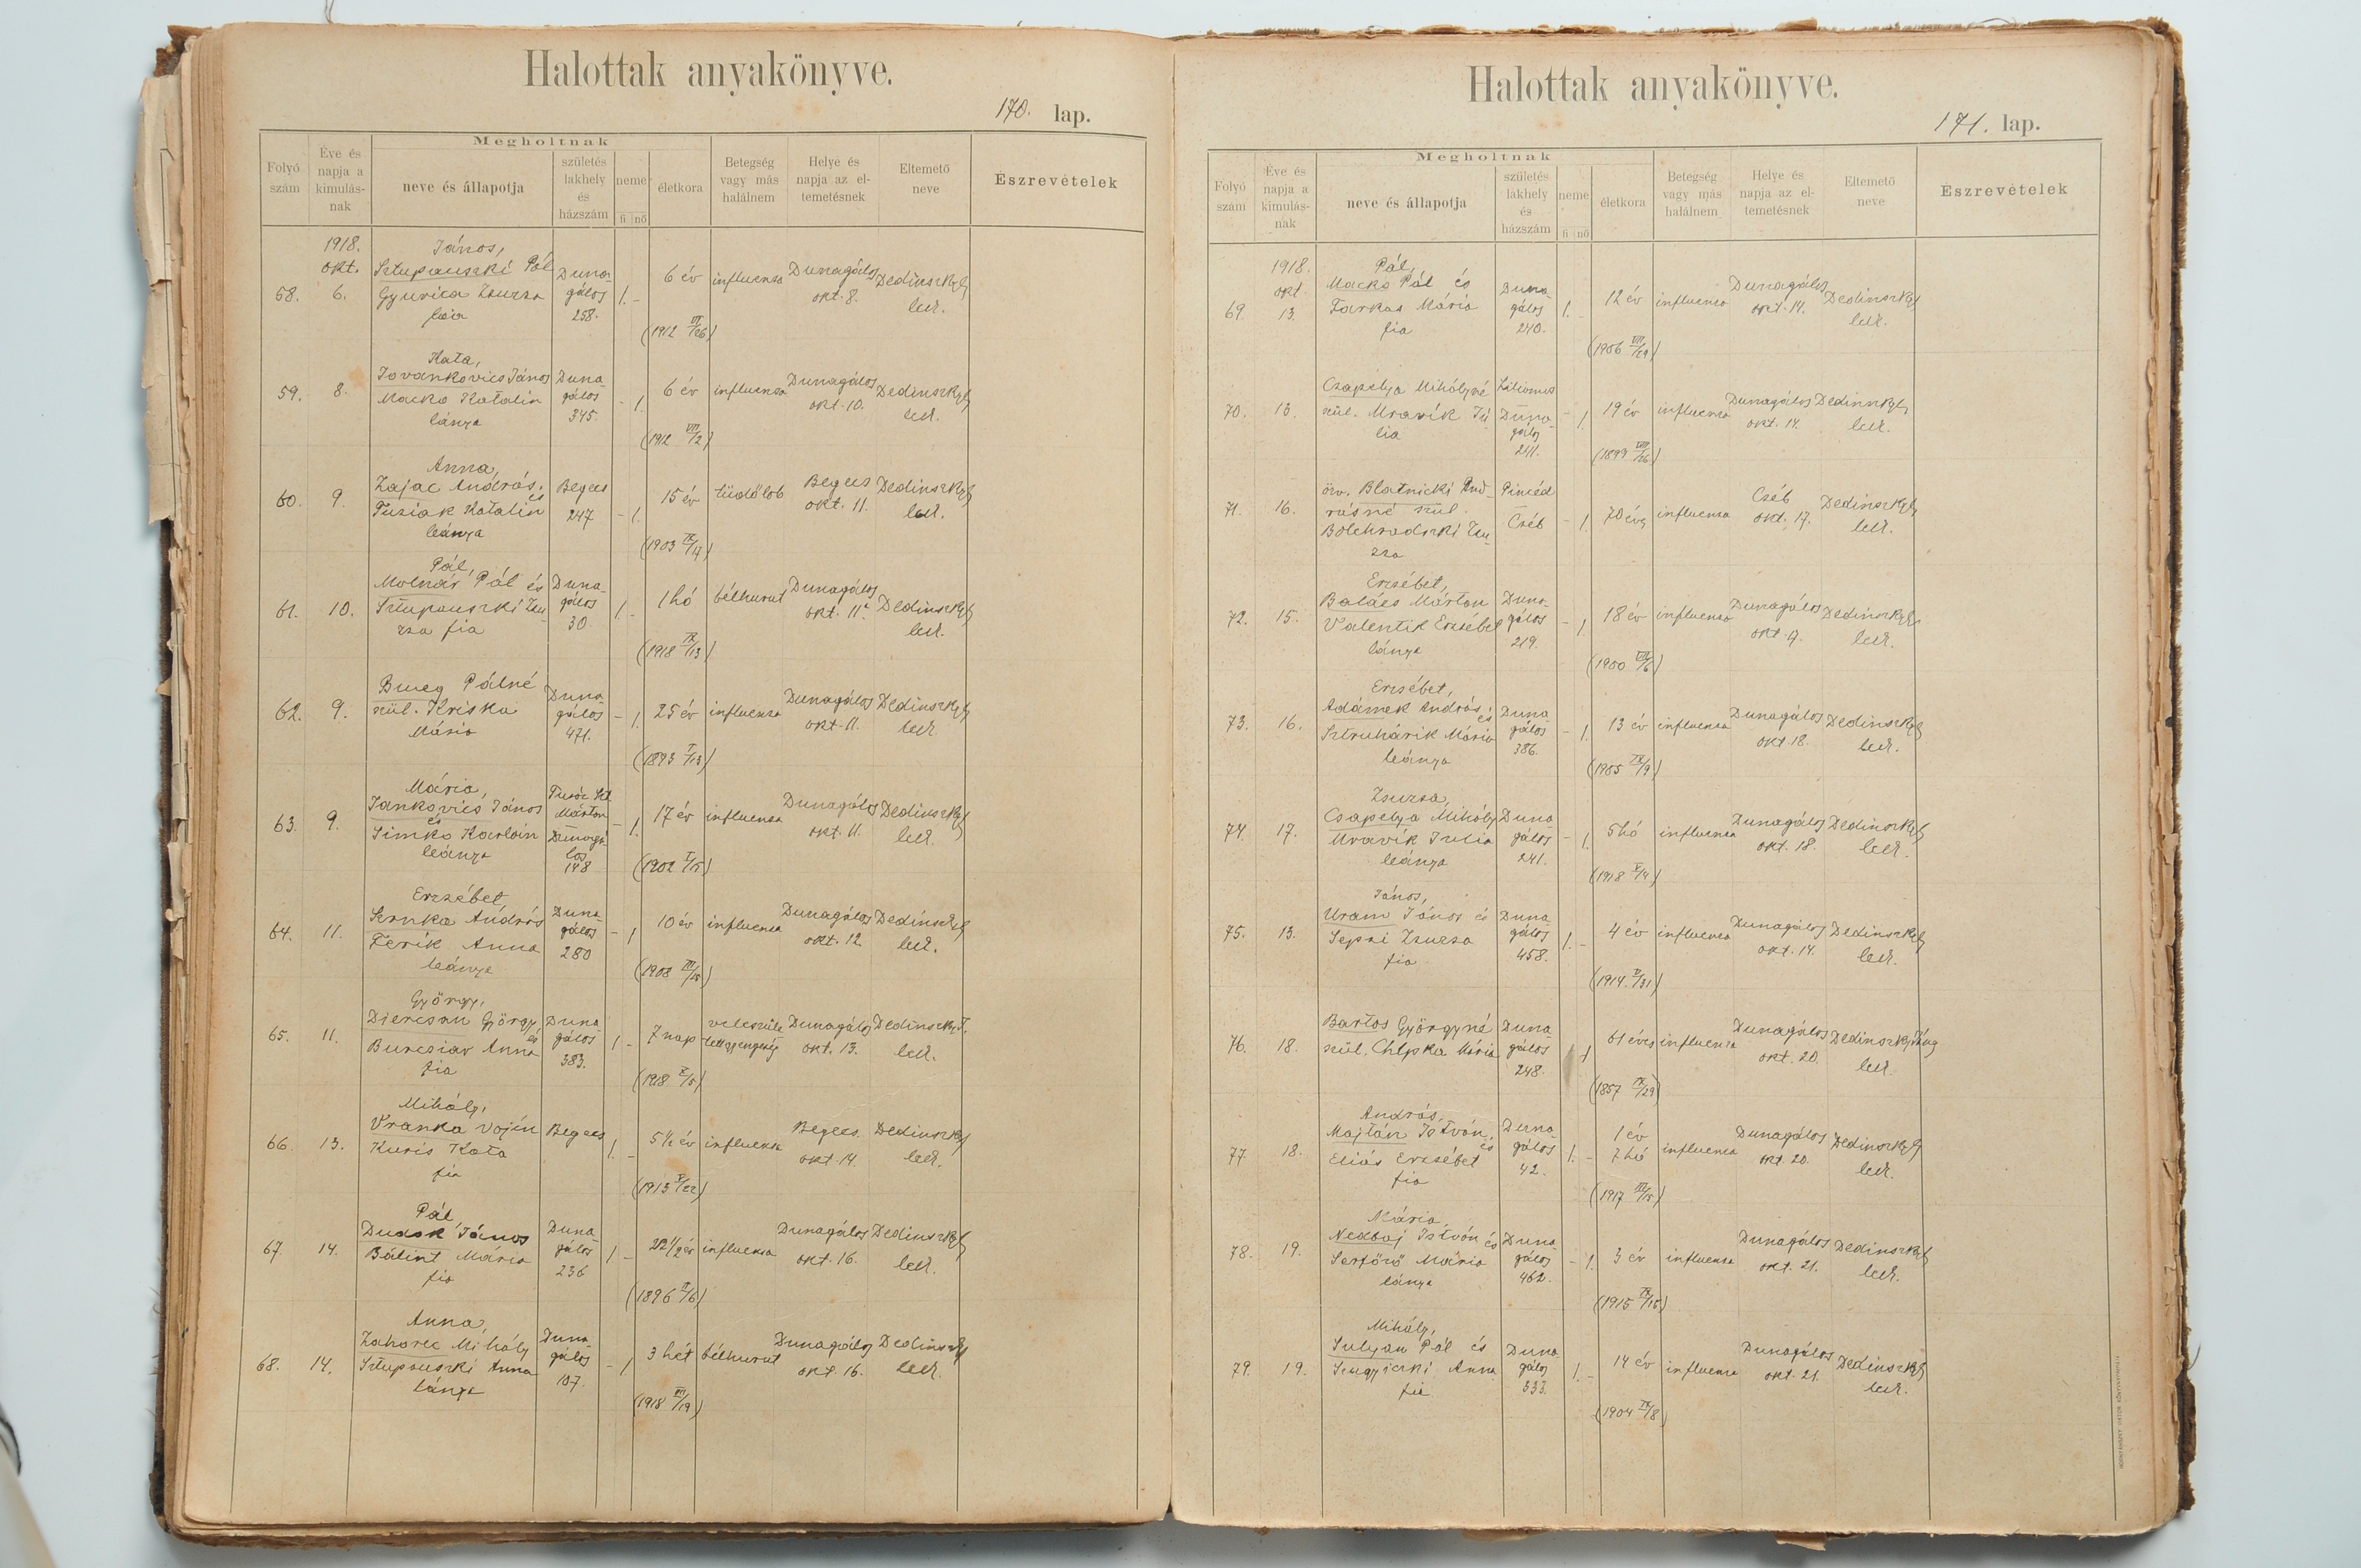 Halottak anyakönyve.
170. lap.
Folyó szám
Éve és napja a kimulás-nak
Megholtnak
neve és állapotja
születés lakhely és házszám
neme
fi nő
életkora
Betegség vagy más halálnem
Helye és napja az el-temetésnek
Eltemető neve
Észrevételek
1918. János,
okt. Sztupauszki Pál Duna- 6 év influenza Dunagálos Dedinszky
58. 6. Gyurica Zsuzsa gálos 1. - okt. 8. lelk.
fia 258. (1912
Kata,
Jovankovics János Duna- 6 év influenza Dunagálos Dedinszky
59. 8. Macko Katalin gálos - 1. okt. 10. lelk.
lánya 345. (1912 VIII/2)
Anna,
Zajac András és Begecs 15 év tüdőlob Begecs Dedinszky
60. 9. Katalin 247 - 1. okt. 11. lelk.
leánya (1903
Pál,
Molnár Pál és Duna- 1 hó bélhurut Dunagálos Dedinszky
61. 10. Sztupauszki Zsu- gálos 1. - okt. 11. lelk.
zsa fia 30. (1918 IX/13)
Pálné Duna- 25 év influenza Dunagálos Dedinszky
62. 9. szül. Kriska gálos - 1. okt. 11. lelk.
Mária 471. (1893 I/13)
Mária, Márton
Jankovics János és 17 év influenza Dunagálos Dedinszky
63. 9. Simko Dunagá- - 1. okt. 11. lelk.
leánya los 148 (1902
Erzsébet,
Srnka András Duna- 10 év influenza Dunagálos Dedinszky
64. 11. Ferik Anna gálos - 1 okt. 12. lelk.
leánya 280 (1908
György,
György és Duna- 7 nap veleszüle- Dunagálos Dedinszky T.
65. 11. Burcsiar Anna gálos 1 - tett gyengeség okt. 13. lelk.
fia 383. (1918 X/5)
Mihály,
Vranka Begecs 5½ év influenza Begecs Dedinszky
66. 13. Kuris Kata 1. - okt. 14. lelk.
fia (1913 V/22)
Pál
Dudok János Duna- 22 1/2 év influenza Dunagálos Dedinszky
67. 14. Bálint Mária gálos 1. - okt. 16. lelk.
fia 236 (1896
Anna,
Zahorec Mihály Duna- 3 hét bélhurut Dunagálos Dedinszky
68. 14. Sztupauszki Anna gálos - 1 okt. 16. lelk.
lánya 107. (1918
Halottak anyakönyve.
171. lap.
Folyó szám
Éve és napja a kimulás-nak
Megholtnak
neve és állapotja
születés lakhely és házszám
neme
fi nő
életkora
Betegség vagy más halálnem
Helye és napja az el-temetésnek
Eltemető neve
Észrevételek
1918. Pál,
okt. Macko Pál és Duna- 12 év influenza Dunagálos Dedinszky
69. 13. Farkas Mária gálos 1. - okt. 14. lelk.
fia 240. (1906 VIII/29)
Csapelya Mihályné
70. 13. szül. Mravik Jú- Duna- - 1. 19 év influenza Dunagálos Dedinszky
lia gálos 241. okt. 14. lelk.
(1899 VIII/26)
özv. Blatnicki And- Pincéd
71. 16. rásné szül. Czéb - 1. 70 éves influenza Czéb Dedinszky
Bolehradszki Zsu- okt. 17. lelk.
zsa
Erzsébet,
Balács Márton Duna- 18 év influenza Dunagálos Dedinszky
72. 15. Valentik Erzsébet gálos - 1. okt. lelk.
lánya 219. (1900
Erzsébet,
Adámek András és Duna- 13 év influenza Dunagálos Dedinszky
73. 16. Sztruhárik Mária gálos - 1. okt. 18. lelk.
leánya 386. (1905 IX/9)
Zsuzsa,
Csapelya Mihály Duna- 5 hó influenza Dunagálos Dedinszky
74. 17. Mravik Julia gálos - 1. okt. 18. lelk.
leánya 241. (1918
János,
Uram János és Duna- 4 év influenza Dunagálos Dedinszky
75. 13. Sepsi Zsuzsa gálos 1. - okt. 14. lelk.
fia 458. (1914. V/31)
Bartos Györgyné Duna- 61 éves influenza Dunagálos Dedinszky
76. 18. szül. Chlpka Mária gálos 1 okt. 20. lelk.
248. (1857 IX/29)
András,
Majtán István és Duna- 1 év influenza Dunagálos Dedinszky
77 18. Eliás Erzsébet gálos 1. - 7 hó okt. 20. lelk.
fia 42. (1917 III/15)
Mária,
Nedbaj István és Duna- 3 év influenza Dunagálos Dedinszky
78. 19. Sertörő Mária gálos - 1. okt. 21. lelk.
lánya 462. (1915 IX/15)
Mihály,
Sulyan Pál és Duna- 14 év influenza Dunagálos Dedinszky
79. 19. Anna gálos 1. - okt. 21. lelk.
fia 333. (1904 IX/8)